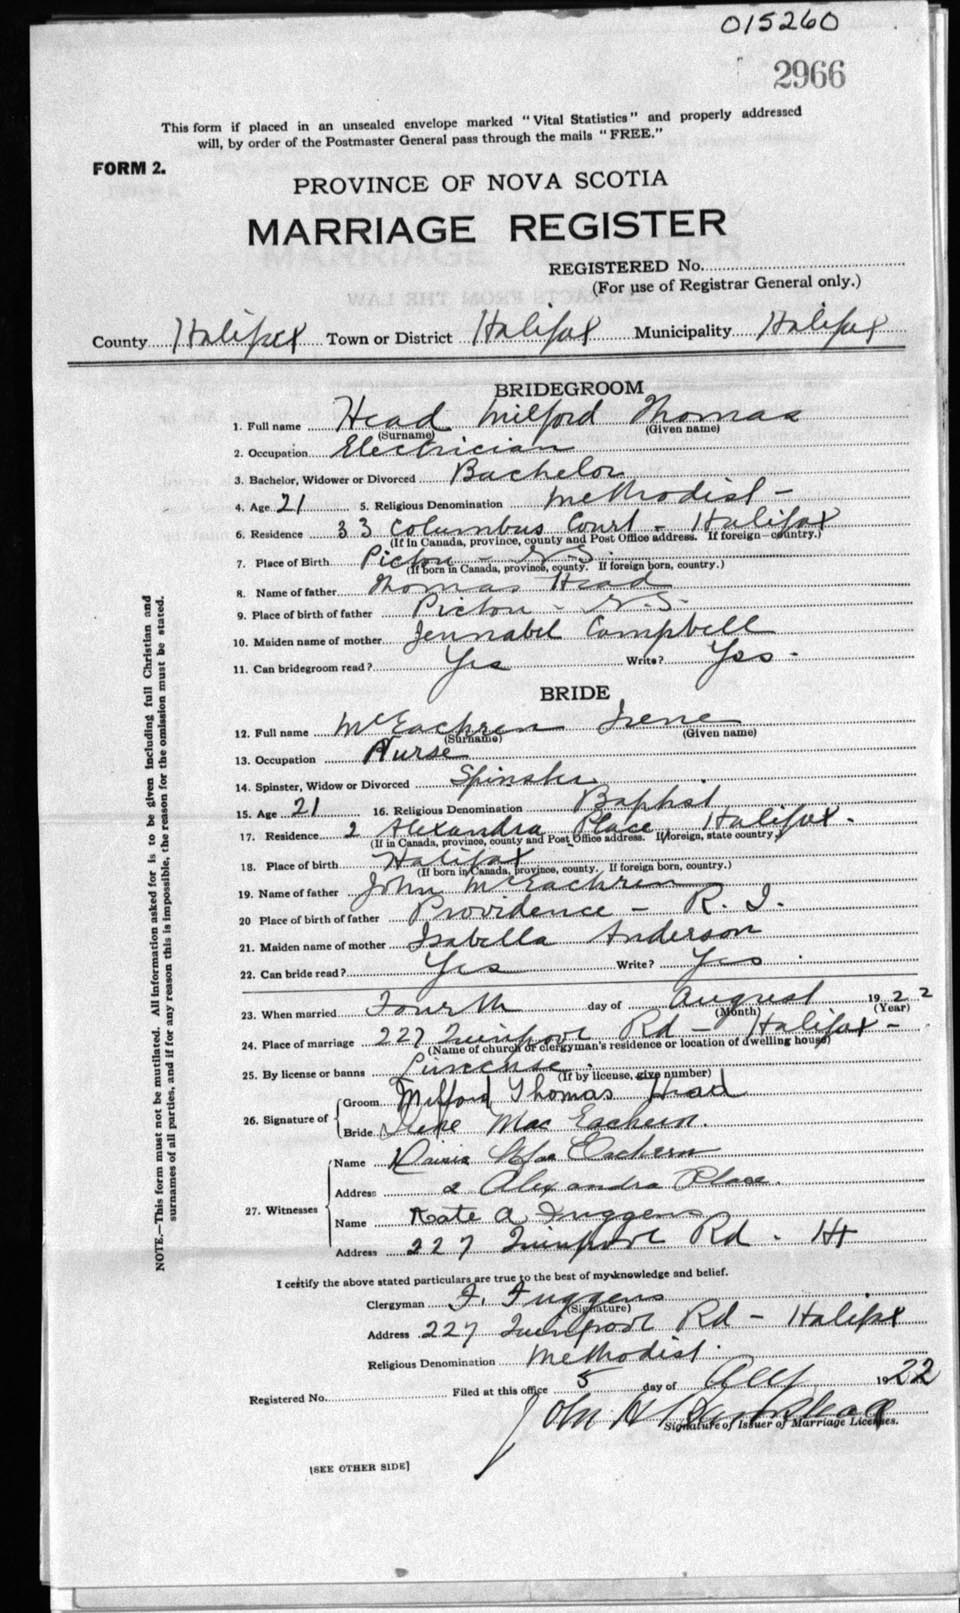 015260
2966
This form if placed in an unsealed envelope marked "Vital Statistics" and properly addressed
will, by order of the Postmaster General pass through the mails "FREE."
FORM 2.
PROVINCE OF NOVA SCOTIA
MARRIAGE REGISTER
REGISTERED No.
(For use of Registrar General only.)
County Halifax Town or District Halifax Municipality Halifax
BRIDEGROOM
1. Full name Head Milford Thomas
(Surname) (Given name)
2. Occupation Electrician
3. Bachelor, Widower or Divorced Bachelor
4. Age 21 5. Religious Denomination Methodist -
6. Residence 33 Columbus Court - Halifax
(If in Canada, province, county and Post Office address. If foreign—country.)
7. Place of Birth Pictou - N.S.
(If born in Canada, province, county. If foreign born, country.)
8. Name of father Thomas Head
9. Place of birth of father Pictou - N.S.
10. Maiden name of mother Jennabel Campbell
11. Can bridegroom read? Yes Write? Yes -
BRIDE
12. Full name McEachren Irene
(Surname) (Given name)
13. Occupation Nurse
14. Spinster, Widow or Divorced Spinster
15. Age 21 16. Religious Denomination Baptist
17. Residence 2 Alexandra Place, Halifax.
(If in Canada, province, county and Post Office address. If foreign, state country.)
18. Place of birth Halifax
(If born in Canada, province, county. If foreign born, country.)
19. Name of father John McEachren
20 Place of birth of father Providence - R.I.
21. Maiden name of mother Isabella Anderson
22. Can bride read? Yes Write? Yes.
23. When married Fourth day of August 1922
(Month) (Year)
24. Place of marriage 227 Quinpool Rd - Halifax -
(Name of church or clergyman's residence or location of dwelling house)
25. By license or banns License.
(If by license, give number)
26. Signature of Groom Milford Thomas Head
Bride Irene Mac Eachern.
27. Witnesses
Name Mac Eachern
Address 2 Alexandra Place.
Name Kate A Friggens
Address 227 Quinpool Rd. Hx
I certify the above stated particulars are true to the best of my knowledge and belief.
Clergyman F. Friggens
(Signature)
Address 227 Quinpool Rd - Halifax
Religious Denomination Methodist.
Registered No. Filed at this office 5 day of Aug 1922
John H
Signature of Issuer of Marriage Licenses.
[SEE OTHER SIDE]
NOTE.—This form must not be mutilated. All information asked for is to be given including full Christian and
surnames of all parties, and if for any reason this is impossible, the reason for the omission must be stated.